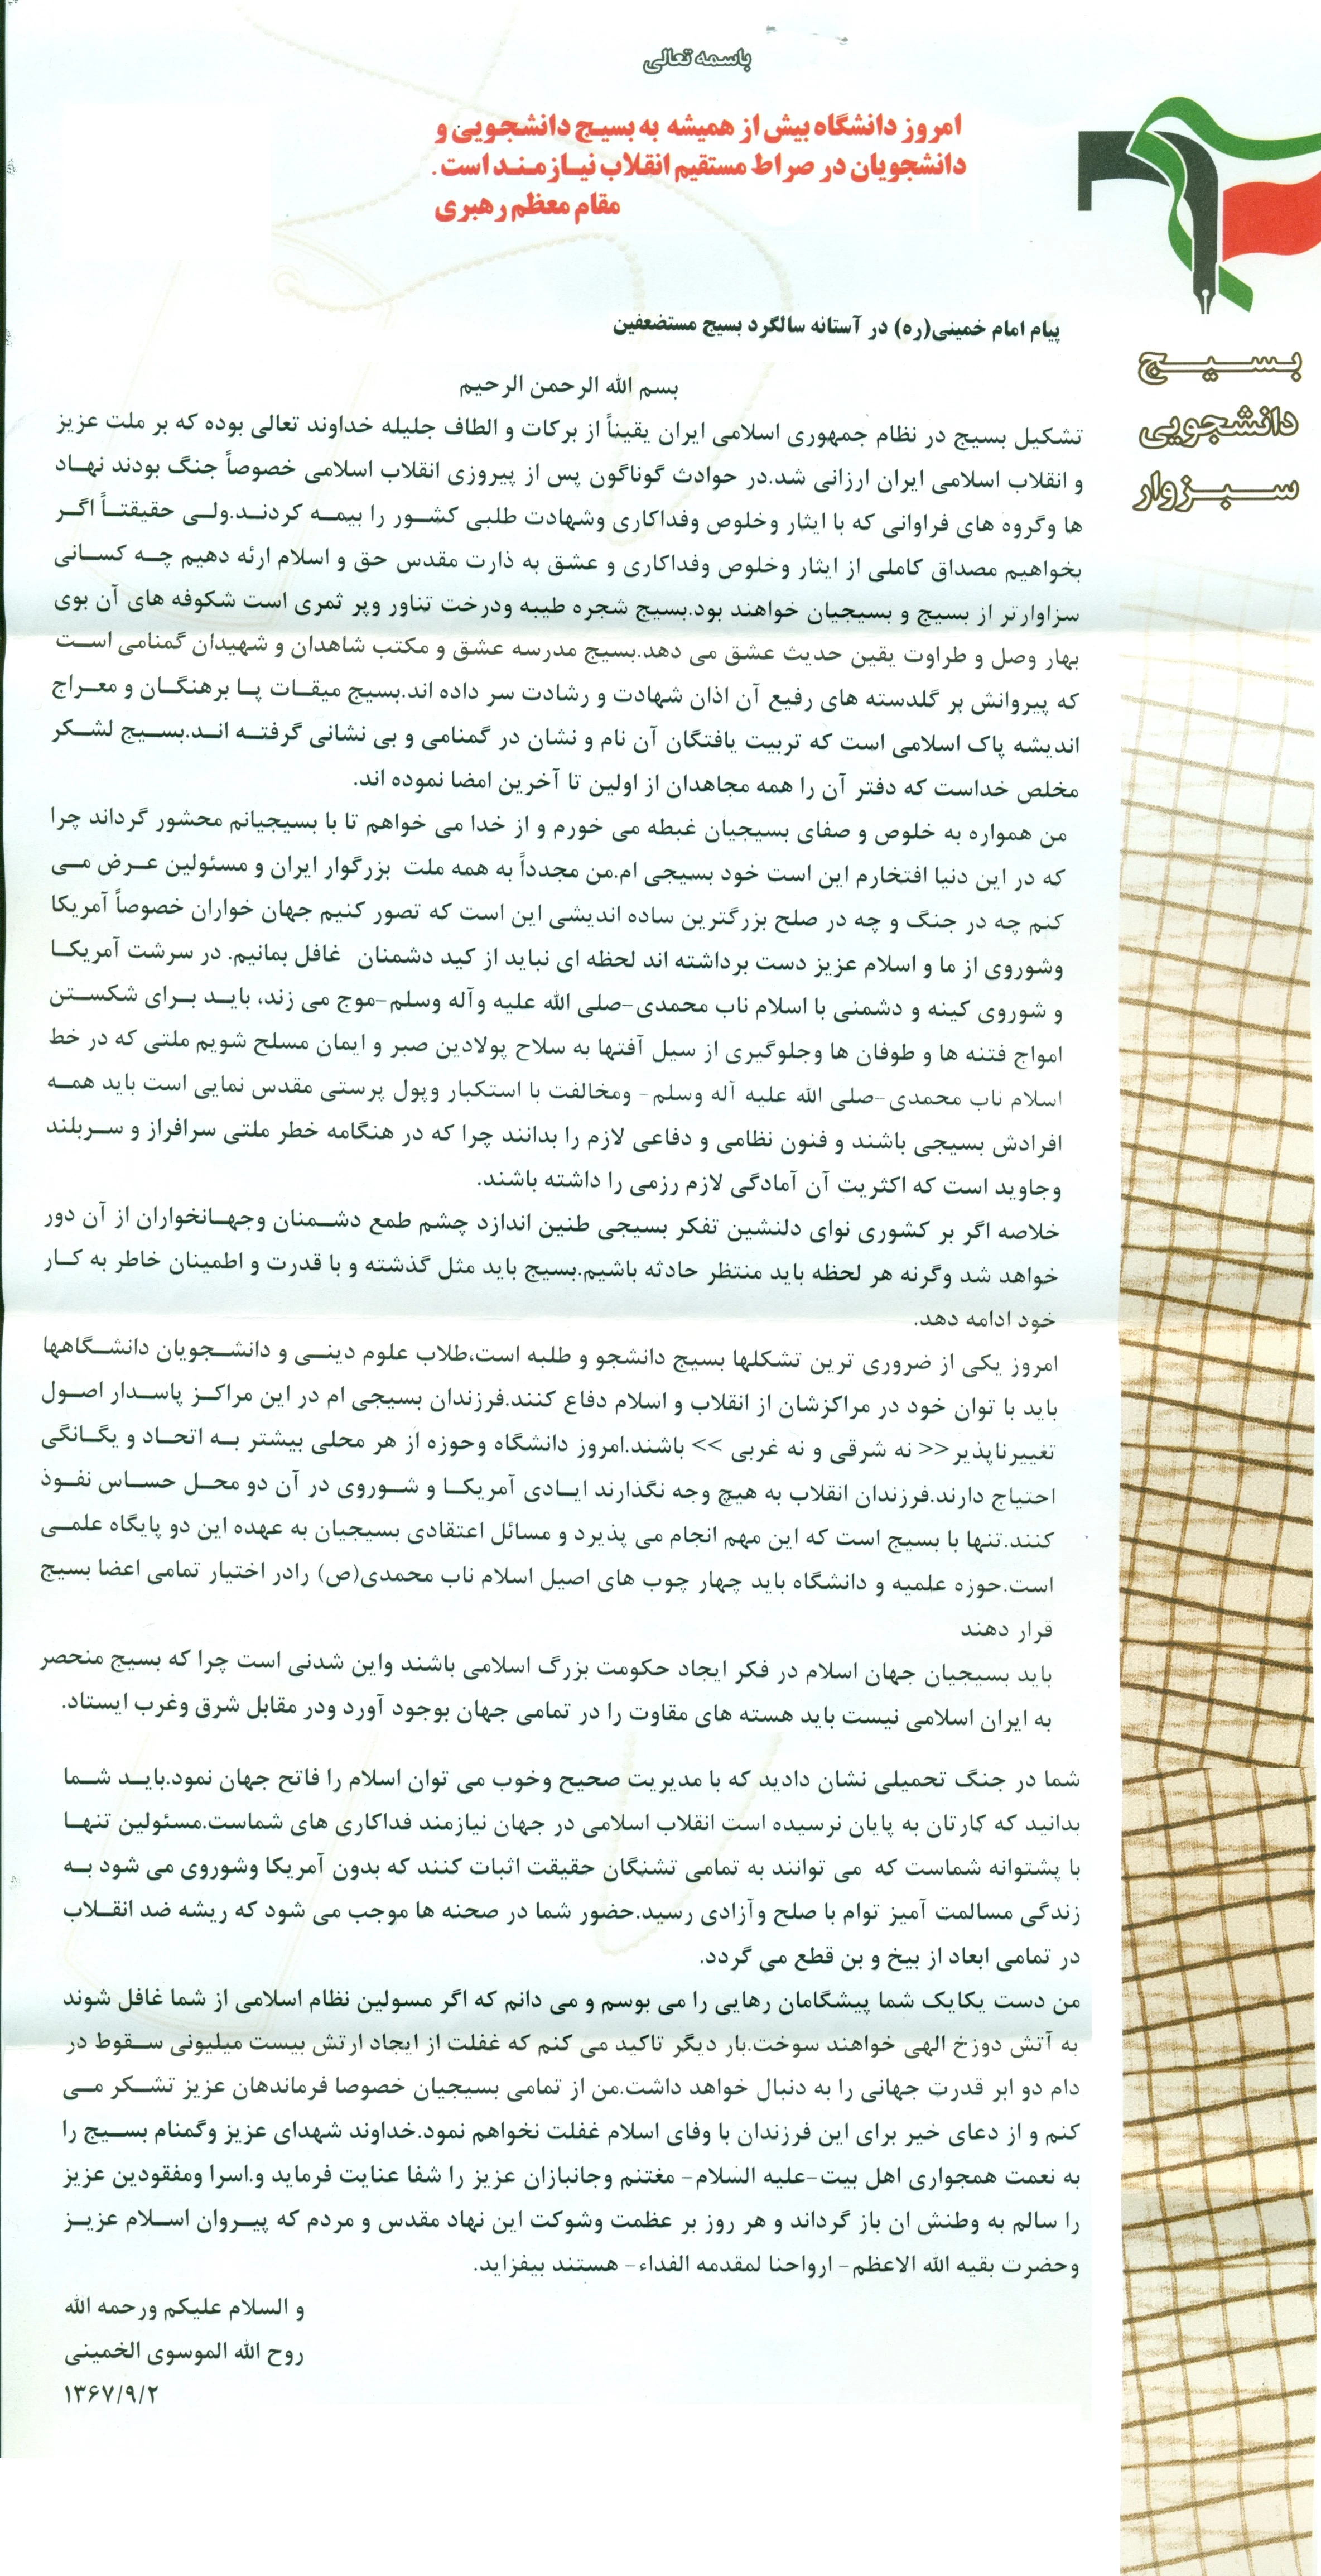 باسمه تعالی
امروز دانشگاه بیش از همیشه به بسیج دانشجویی و
دانشجویان در صراط مستقیم انقلاب نیازمند است .
مقام معظم رهبری
بسیج
دانشجویی
سبزوار
پیام امام خمینی(ره) در آستانه سالگرد بسیج مستضعفین
بسم الله الرحمن الرحیم
تشکیل بسیج در نظام جمهوری اسلامی ایران یقیناً از برکات و الطاف جلیله خداوند تعالی بوده که بر ملت عزیز
و انقلاب اسلامی ایران ارزانی شد.در حوادث گوناگون پس از پیروزی انقلاب اسلامی خصوصاً جنگ بودند نهاد
ها وگروه های فراوانی که با ایثار وخلوص وفداکاری وشهادت طلبی کشور را بیمه کردند.ولی حقیقتاً اگر
بخواهیم مصداق کاملی از ایثار وخلوص وفداکاری و عشق به ذارت مقدس حق و اسلام ارئه دهیم چه کسانی
سزاوارتر از بسیج و بسیجیان خواهند بود.بسیج شجره طیبه ودرخت تناور وپر ثمری است شکوفه های آن بوی
بهار وصل و طراوت یقین حدیث عشق می دهد.بسیج مدرسه عشق و مکتب شاهدان و شهیدان گمنامی است
که پیروانش بر گلدسته های رفیع آن اذان شهادت و رشادت سر داده اند.بسیج میقات پا برهنگان و معراج
اندیشه پاک اسلامی است که تربیت یافتگان آن نام و نشان در گمنامی و بی نشانی گرفته اند.بسیج لشکر
مخلص خداست که دفتر آن را همه مجاهدان از اولین تا آخرین امضا نموده اند.
من همواره به خلوص و صفای بسیجیان غبطه می خورم و از خدا می خواهم تا با بسیجیانم محشور گرداند چرا
که در این دنیا افتخارم این است خود بسیجی ام.من مجدداً به همه ملت بزرگوار ایران و مسئولین عرض می
کنم چه در جنگ و چه در صلح بزرگترین ساده اندیشی این است که تصور کنیم جهان خواران خصوصاً آمریکا
وشوروی از ما و اسلام عزیز دست برداشته اند لحظه ای نباید از کید دشمنان غافل بمانیم. در سرشت آمریکا
و شوروی کینه و دشمنی با اسلام ناب محمدی-صلی الله علیه وآله وسلم-موج می زند، باید برای شکستن
امواج فتنه ها و طوفان ها وجلوگیری از سیل آفتها به سلاح پولادین صبر و ایمان مسلح شویم ملتی که در خط
اسلام ناب محمدی-صلی الله علیه آله وسلم- ومخالفت با استکبار وپول پرستی مقدس نمایی است باید همه
افرادش بسیجی باشند و فنون نظامی و دفاعی لازم را بدانند چرا که در هنگامه خطر ملتی سرافراز و سربلند
وجاوید است که اکثریت آن آمادگی لازم رزمی را داشته باشند.
خلاصه اگر بر کشوری نوای دلنشین تفکر بسیجی طنین اندازد چشم طمع دشمنان وجهانخواران از آن دور
خواهد شد وگرنه هر لحظه باید منتظر حادثه باشیم.بسیج باید مثل گذشته و با قدرت و اطمینان خاطر به کار
خود ادامه دهد.
امروز یکی از ضروری ترین تشکلها بسیج دانشجو و طلبه است،طلاب علوم دینی و دانشجویان دانشگاهها
باید با توان خود در مراکزشان از انقلاب و اسلام دفاع کنند.فرزندان بسیجی ام در این مراکز پاسدار اصول
تغییرناپذیر<< نه شرقی و نه غربی >> باشند.امروز دانشگاه وحوزه از هر محلی بیشتر به اتحاد و یگانگی
احتیاج دارند.فرزندان انقلاب به هیچ وجه نگذارند ایادی آمریکا و شوروی در آن دو محل حساس نفوذ
کنند.تنها با بسیج است که این مهم انجام می پذیرد و مسائل اعتقادی بسیجیان به عهده این دو پایگاه علمی
است.حوزه علمیه و دانشگاه باید چهار چوب های اصیل اسلام ناب محمدی(ص) رادر اختیار تمامی اعضا بسیج
قرار دهند
باید بسیجیان جهان اسلام در فکر ایجاد حکومت بزرگ اسلامی باشند واین شدنی است چرا که بسیج منحصر
به ایران اسلامی نیست باید هسته های مقاوت را در تمامی جهان بوجود آورد ودر مقابل شرق وغرب ایستاد.
شما در جنگ تحمیلی نشان دادید که با مدیریت صحیح وخوب می توان اسلام را فاتح جهان نمود.باید شما
بدانید که کارتان به پایان نرسیده است انقلاب اسلامی در جهان نیازمند فداکاری های شماست.مسئولین تنها
با پشتوانه شماست که می توانند به تمامی تشنگان حقیقت اثبات کنند که بدون آمریکا وشوروی می شود به
زندگی مسالمت آمیز توام با صلح وآزادی رسید.حضور شما در صحنه ها موجب می شود که ریشه ضد انقلاب
در تمامی ابعاد از بیخ و بن قطع می گردد.
من دست یکایک شما پیشگامان رهایی را می بوسم و می دانم که اگر مسولین نظام اسلامی از شما غافل شوند
به آتش دوزخ الهی خواهند سوخت.بار دیگر تاکید می کنم که غفلت از ایجاد ارتش بیست میلیونی سقوط در
دام دو ابر قدرت جهانی را به دنبال خواهد داشت.من از تمامی بسیجیان خصوصا فرماندهان عزیز تشکر می
کنم و از دعای خیر برای این فرزندان با وفای اسلام غفلت نخواهم نمود.خداوند شهدای عزیز وگمنام بسیج را
به نعمت همجواری اهل بیت-علیه السلام- مغتنم وجانبازان عزیز را شفا عنایت فرماید و.اسرا ومفقودین عزیز
را سالم به وطنش ان باز گرداند و هر روز بر عظمت وشوکت این نهاد مقدس و مردم که پیروان اسلام عزیز
وحضرت بقیه الله الاعظم- ارواحنا لمقدمه الفداء- هستند بیفزاید.
و السلام علیکم ورحمه الله
روح الله الموسوی الخمینی
۱۳۶۷/۹/۲